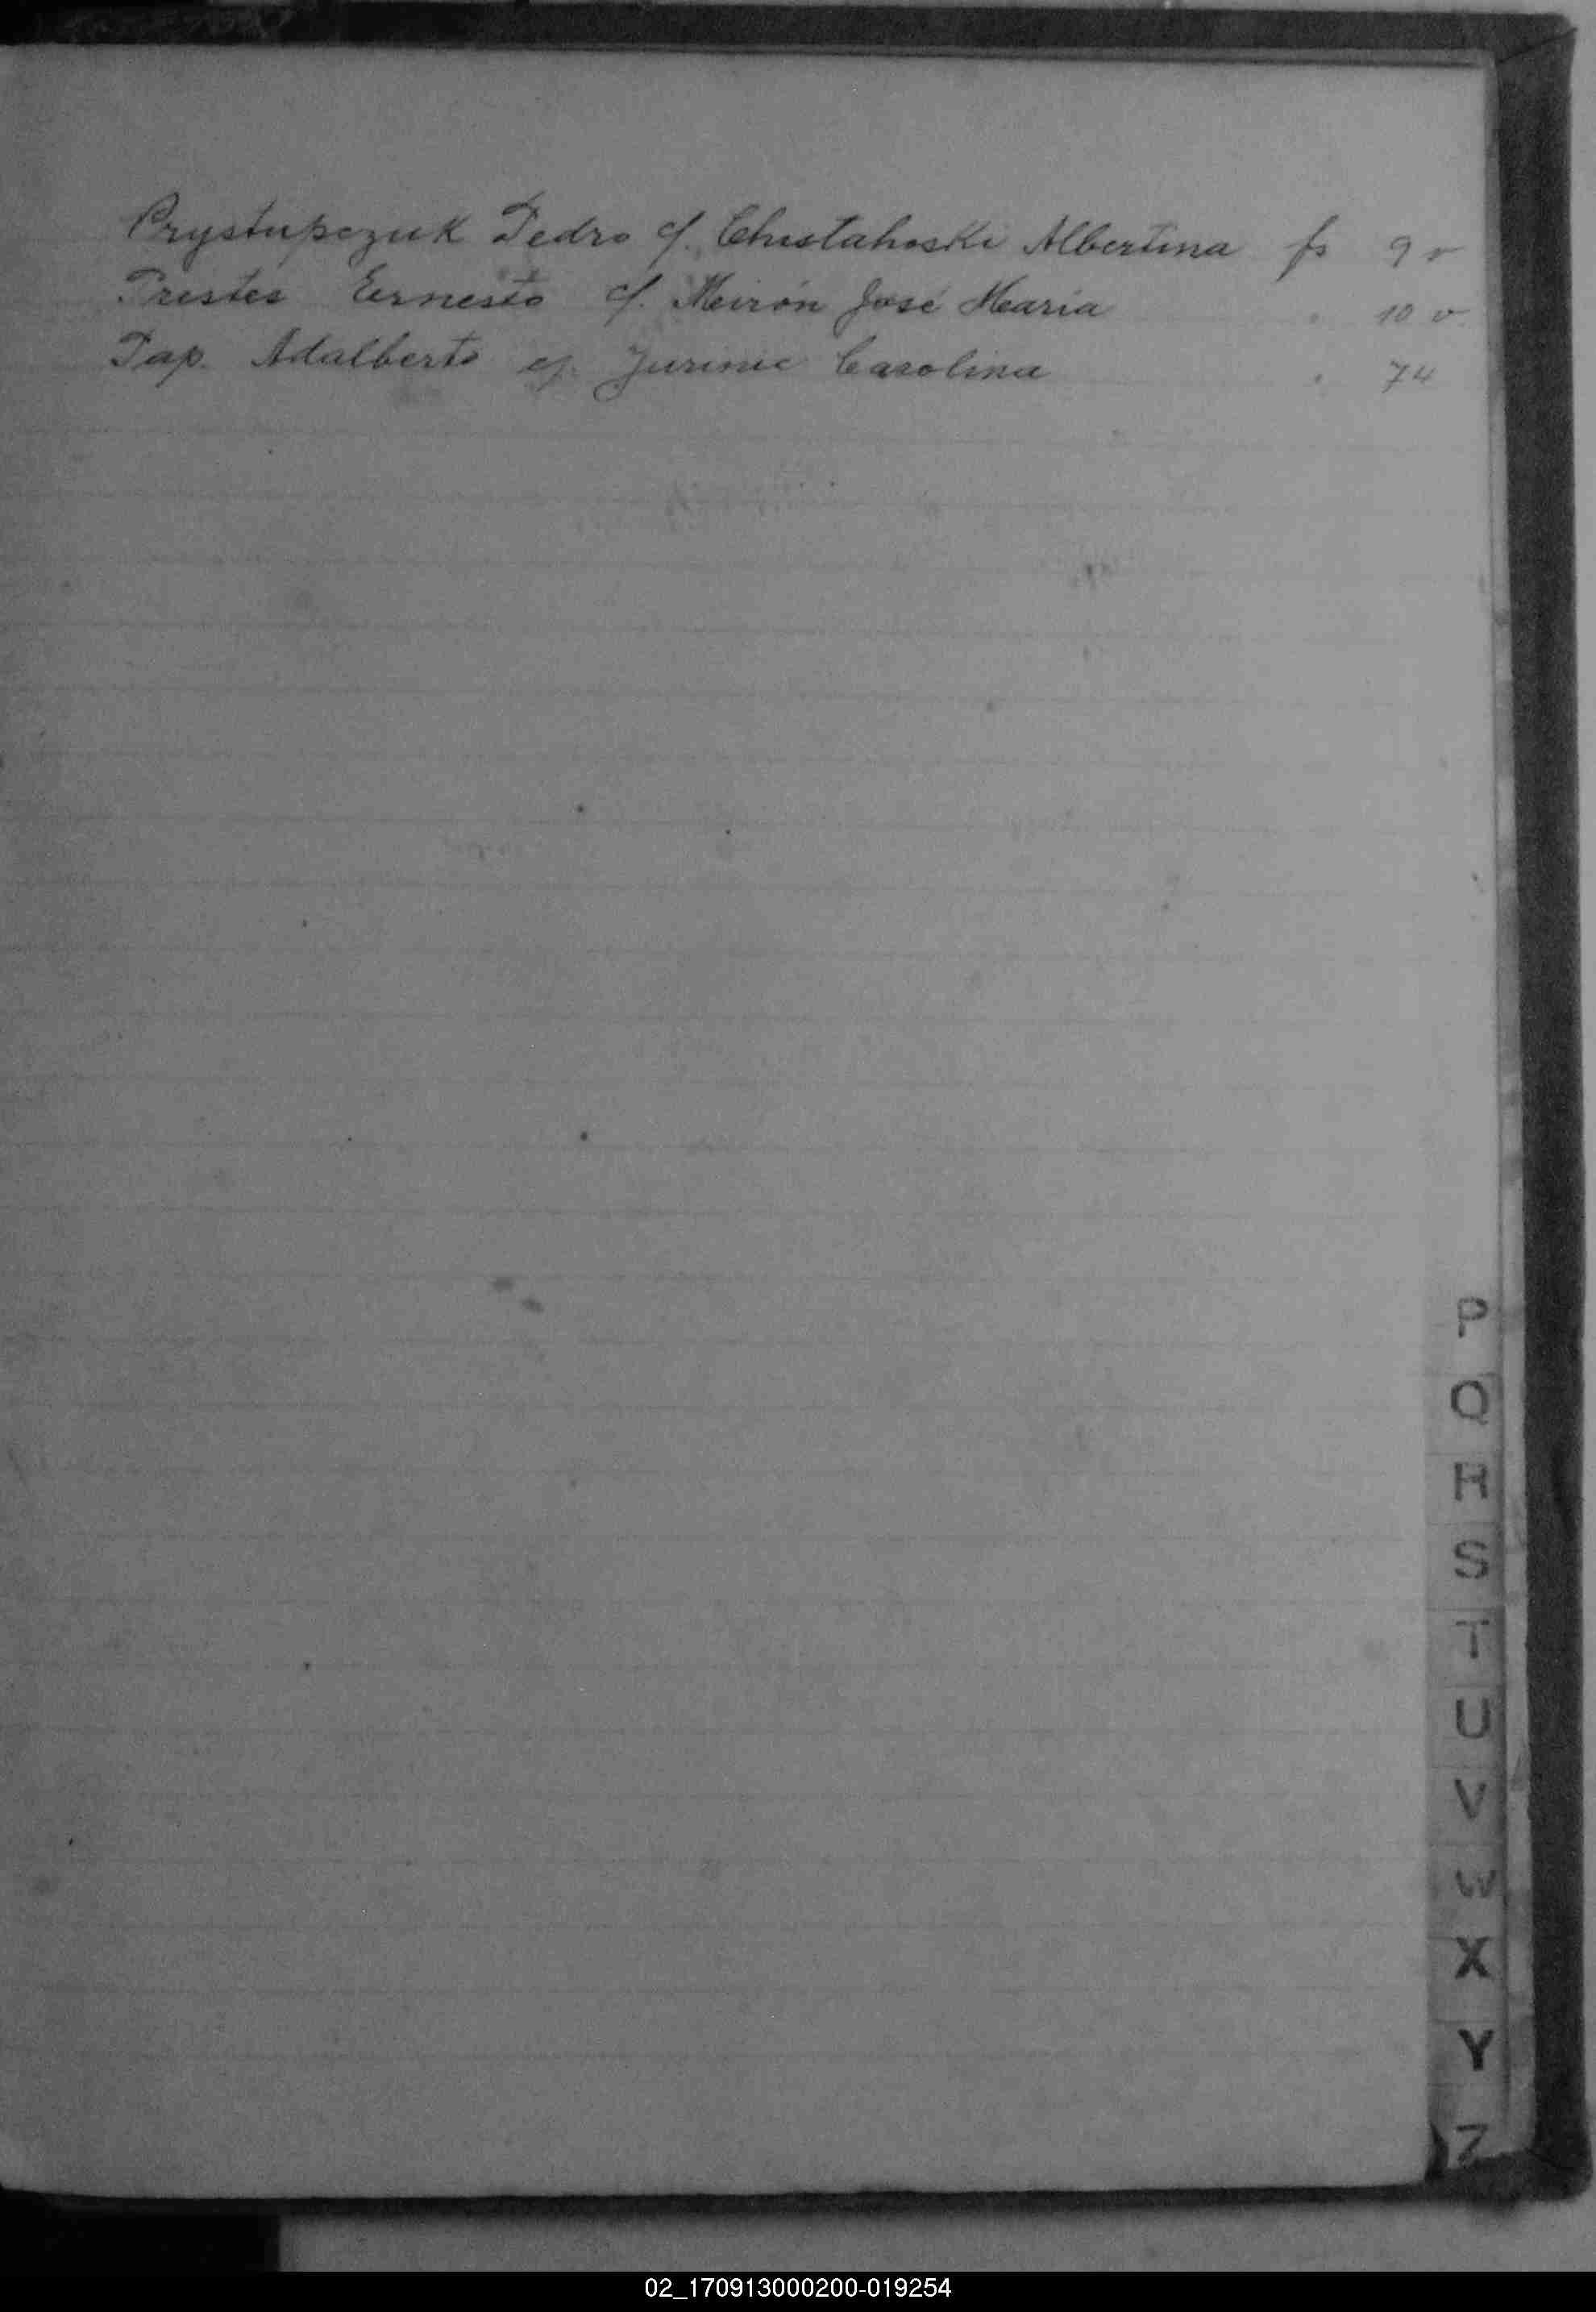 Prystupczuk Pedro c/. Chustahoski Albertina fs 9 v
Prestes Ernesto c/. Meirón José Maria " 10 v.
Pap. Adalberto c/. Jurinic Carolina " 74
P
Q
R
S
T
U
V
W
X
Y
Z
02_170913000200-019254